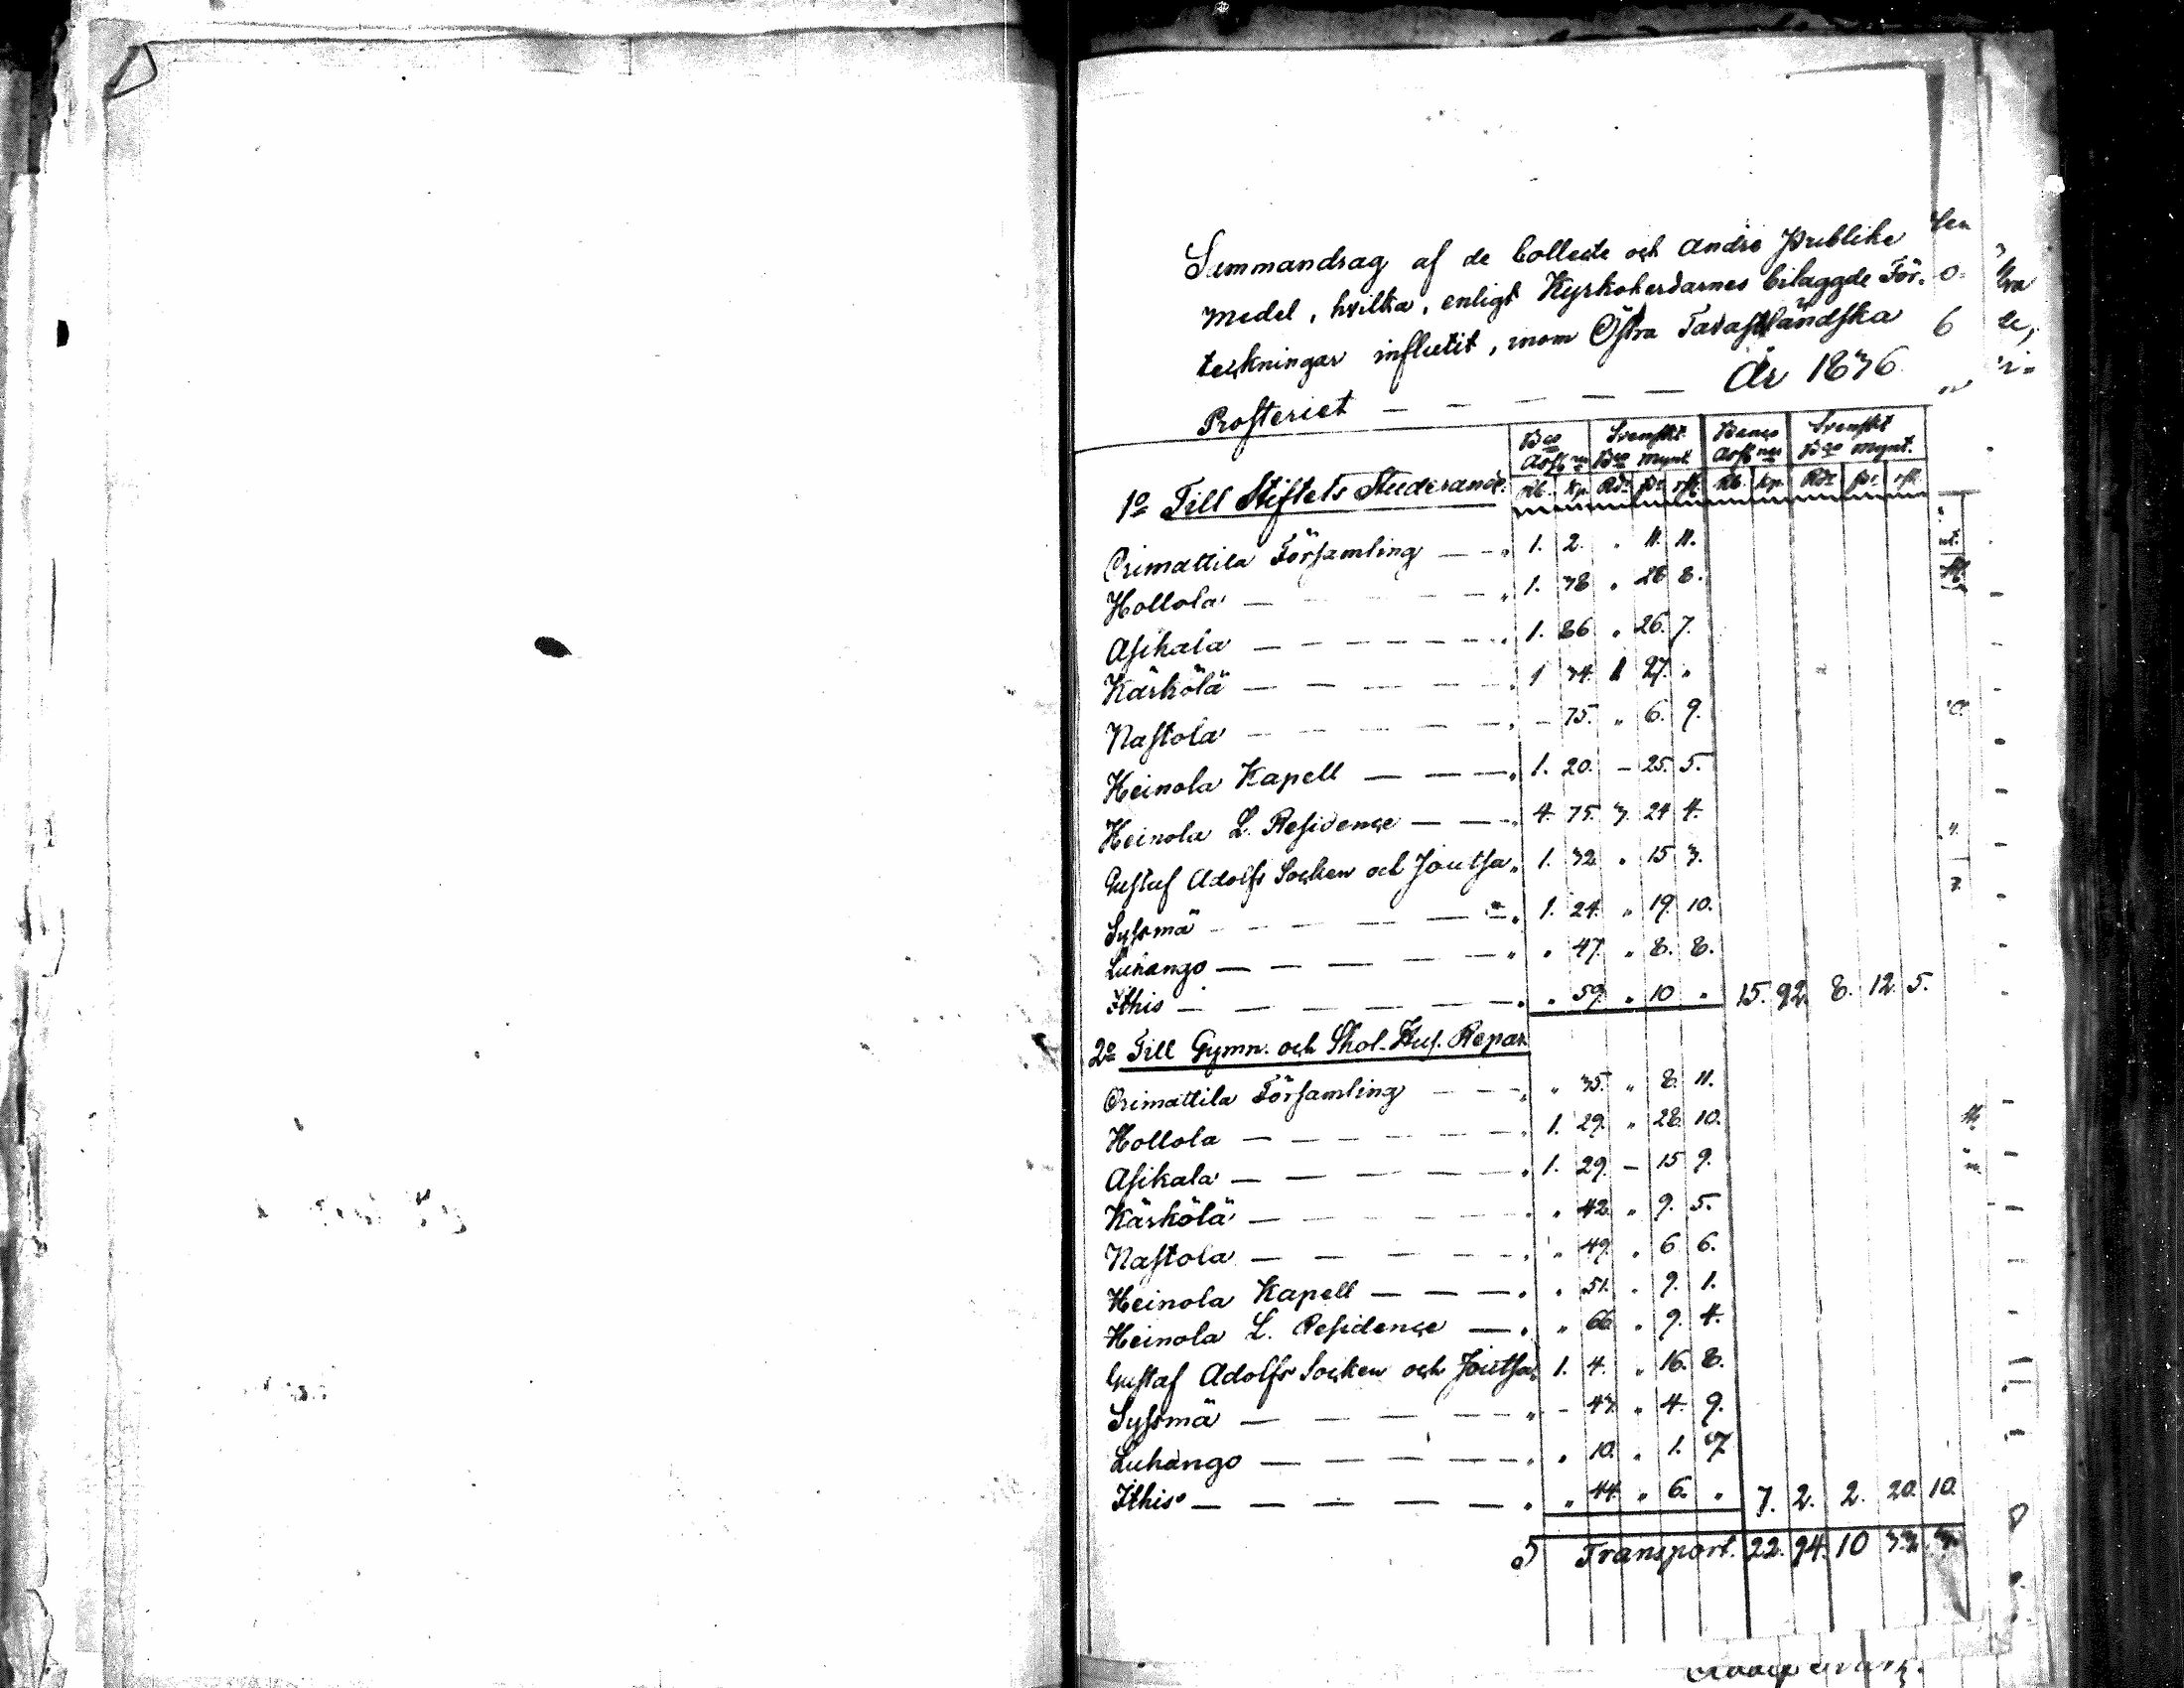 Sammandrag af de Collecte och andre Publike
medel, hvilka, enligt Kyrkoherdarnes bilaggde För-
teckningar influtit, inom Östra Tavastländska
Prosteriet — — — — — År 1836
Bco Assg. Svenskt Bco mynt Banco Assg. Svenskt Bco mynt.
1º Till Stiftets Studerande. Rb. Kp. Rdr. sk. rst. Rb. Kp. Rdr. sk. rst.
Orimattila Församling — — " 1. 2. " 11. 11.
Hollola — — — " 1. 38 " 28 8.
Asikala — — — — — " 1. 86 " 26. 7.
Kärkölä — — — — " 1 34. 1 27. "
Nastola — — — — " — 75. " 6. 9.
Heinola Kapell — — — " 1. 20. — 25. 5.
Heinola L. Residence — — " 4. 75. 3. 24 4.
Gustaf Adolfs Socken och Joutsa " 1. 32 " 15 3.
Syssmä — — — — — " 1. 24. " 19. 10.
Luhango — — — — — " " 47. " 8. 8.
Ithis — — — — — " " 59. " 10 " 15. 92. 8. 12. 5.
2º Till Gymn. och Skol-Hus. Repar.
Orimattila Församling — — " " 35. " 8. 11.
Hollola — — — — — " 1. 29. " 28. 10.
Asikala — — — — — " 1. 29. — 15 9.
Kärkölä — — — — " " 42. " 9. 5.
Nastola — — — — — " " 49. " 6 6.
Heinola Kapell — — — " " 51. " 9. 1.
Heinola L. Residence — " " 66 " 9. 4.
Gustaf Adolfs Socken och Joutsa " 1. 4. " 16. 8.
Syssmä — — — — — " — 43. " 4. 9.
Luhango — — — — — " " 10. " 1. 7
Ithis — — — — — " " 44. " 6. " 7. 2. 2. 20. 10.
Transport. 22. 94. 10 33. 3.